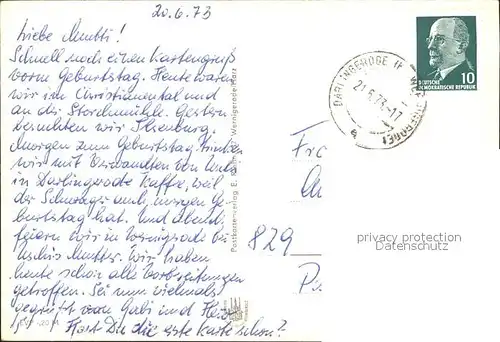 20.6.73
Liebe Mutti!
Schnell noch einen Kartengruß
vorm Geburtstag. Heute waren
wir im Christianental und
an der Storchmühle. Gestern
besuchten wir Ilsenburg.
Morgen zum Geburtstag trinken
wir mit Verwandten von
in Darlingerode Kaffee, weil
der Schwager auch morgen Ge-
burtstag hat. Und abends
feiern wir in Wernigerode bei
Uschis Mutter. Wir haben
heute schon alle Vorbereitungen
getroffen. Sei nun vielmals
gegrüßt von Gabi und
Hast Du die erste Karte schon?
Postkartenverlag E. Wernigerode Harz
DEUTSCHE
DEMOKRATISCHE REPUBLIK
10
DARLINGERODE
21.6.73-17
a
829
privacy protection
Darabanth